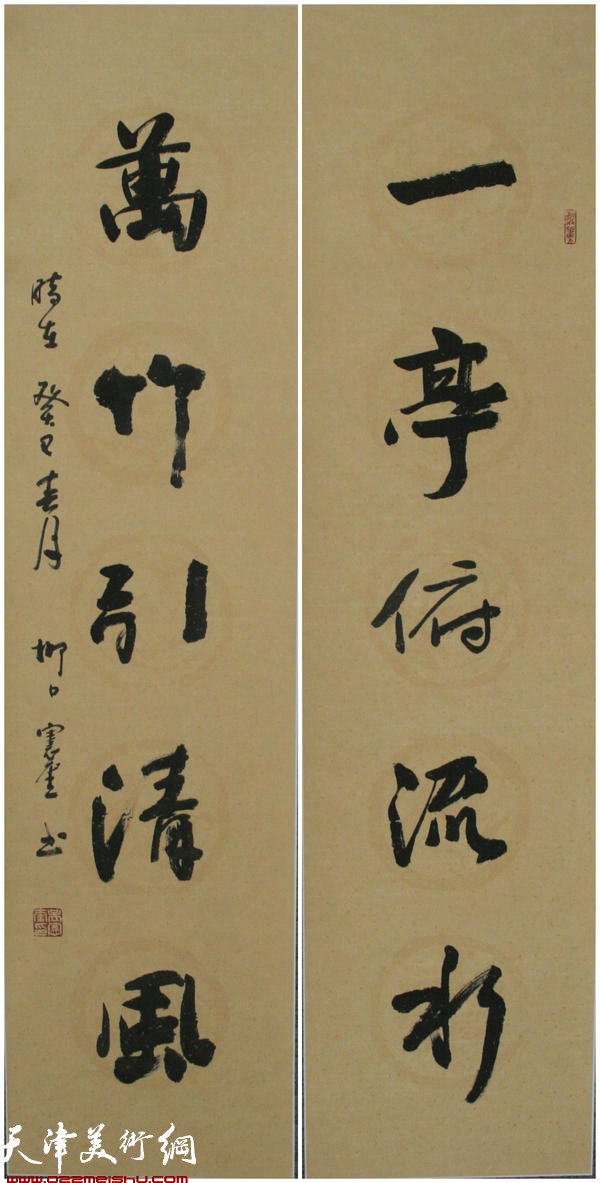 一亭俯流水
萬竹引清風
時在癸巳春月 柳口憲奎书
天津美術網
www.022meishu.com